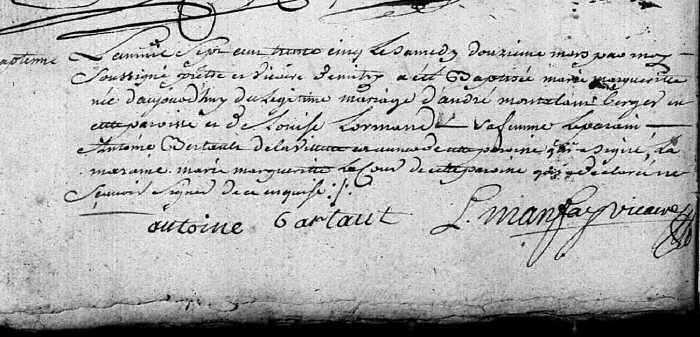 Baptême
L'année Sept cent trente cinq le Samedy douzieme mars par moy
Soussigné prêtre et vicaire a été Baptisée marie marguerite
née d'aujourd'huy du legitime mariage d'andré Berger en
cette paroisse et de Louise Lormand Sa femme le parain
Antoine de cette paroisse qui a signé, la
maraine marie marguerite le Cour de cette paroisse qui a declaré ne
Sçavoir signer de ce enquise ·/·
antoine Bartaut L. vicaire